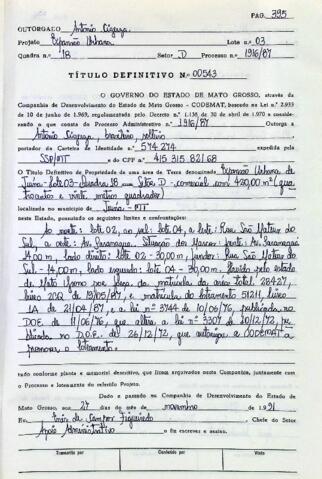 PAG. 395
OUTORGADO Antônio Cigerza
Projeto Expansão Urbana Lote n.º 03
Quadra n.º 18 Setor D Processo n.º 1916/87
TÍTULO DEFINITIVO N.º 00543
O GOVERNO DO ESTADO DE MATO GROSSO, através da
Companhia de Desenvolvimento do Estado de Mato Grosso - CODEMAT, baseado na Lei n.º 2.933
10 de junho de 1969, regulamentada pelo Decreto n.º 1.138 de 30 de abril de 1970 e considerando
o que consta do Processo Administrativo n.º 1916/87 Outorga a
Antônio brasileiro, solteiro
portador da Carteira de Identidade n.º 574.274 expedida pela
SSP/MT e do CPF n.º 415.315.821-68
O Título Definitivo de Propriedade de uma área de Terra denominada Expansão Urbana de
Juína - Lote 03 - Quadra 18 - Setor D - comercial com 420,00m² (quatrocentos
e vinte metros quadrados)
localizada no município de Juína - MT
neste Estado, possuindo os seguintes limites e confrontações:
Ao norte: lote 02, ao sul: lote 04, a leste: Rua São Mateus do
Sul, a oeste: Av. Paranaguá. Situação dos Marcos: frente: Av. Paranaguá
14,00m, lado direito: lote 02 - 30,00m, fundos: Rua São Mateus do
Sul - 14,00m, lado esquerdo: lote 04 - 30,00m. Havido pelo estado
de Mato Grosso por força da matrícula da área total: 28427,
livro 2DQ de 19/05/87, e matrícula do loteamento 51211, livro
2A de 21/04/87, e a lei nº 3744 de 10/06/76, publicada no
DOE. de 11/06/76, que altera a lei nº 3307 de 20/12/72, publicada
no D.O.E. de 26/12/72, que autoriza a CODEMAT a
promover o loteamento.
tudo conforme planta e memorial descritivo, que ficam arquivados nesta Companhia, juntamente com
o Processo e loteamento do referido Projeto.
Dado e passado na Companhia de Desenvolvimento do Estado de
Mato Grosso, aos 27 dias do mês de novembro de 1991
Eu, de Campos Figueiredo Chefe do Setor
Apoio Administrativo o fiz escrever e assino.
Transcrito por Conferido por Visto